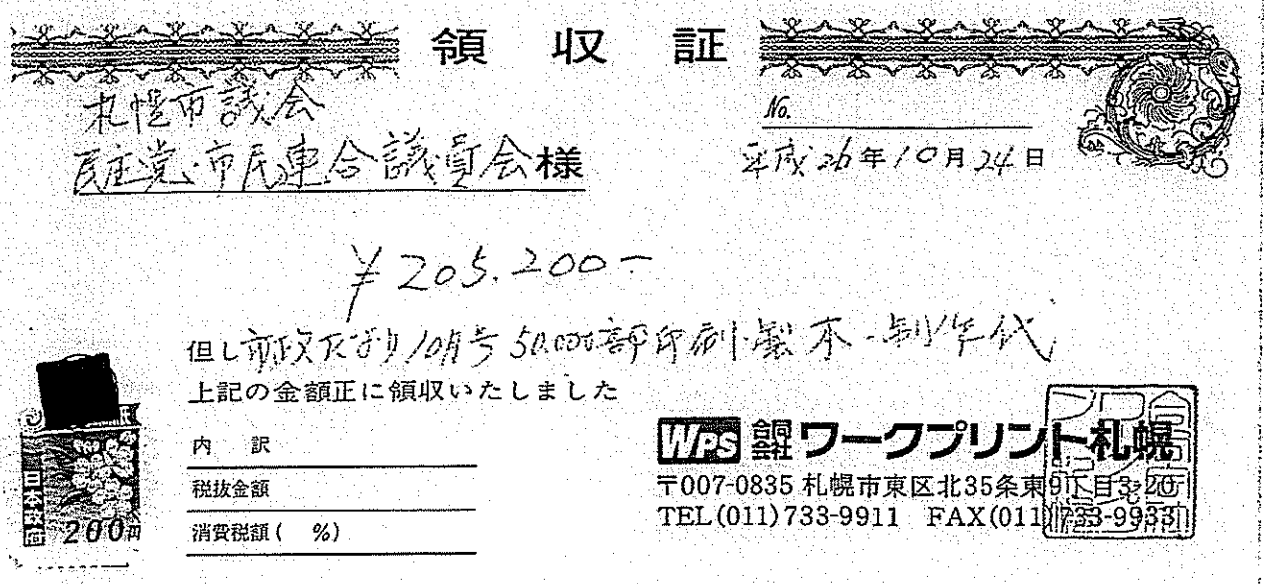 領収証
札幌市議会
No.
民主党・市民連合議員会様
平成26年10月24日
¥205.200-
但し市政だより10月号50,000部印刷・製本・制作代
上記の金額正に領収いたしました
内訳
税抜金額
消費税額( %)
200円
WPS 合同会社 ワークプリント札幌
〒007-0835 札幌市東区北35条東9丁目3-20
TEL(011)733-9911 FAX(011)733-9933